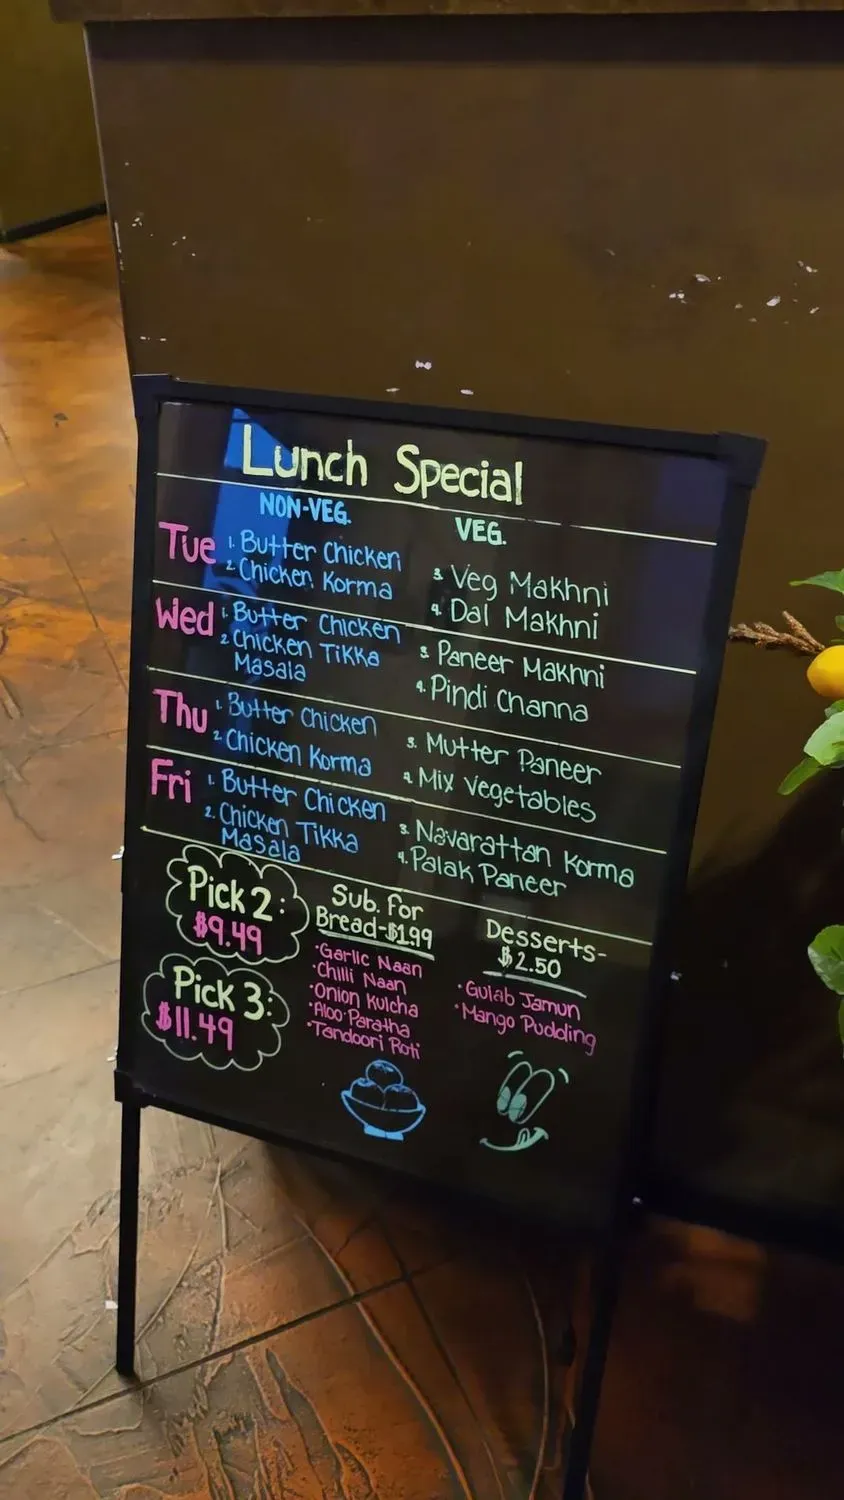 Lunch Special
NON-VEG.
VEG.
Tue
1. Butter Chicken
2. Chicken Korma
3. Veg Makhni
4. Dal Makhni
Wed
1. Butter Chicken
2. Chicken Tikka
Masala
3. Paneer Makhni
4. Pindi Channa
Thu
1. Butter Chicken
2. Chicken Korma
3. Mutter Paneer
4. Mix Vegetables
Fri
1. Butter Chicken
2. Chicken Tikka
Masala
3. Navarattan Korma
4. Palak Paneer
Pick 2:
$9.49
Pick 3:
$11.49
Sub. for
Bread-$1.99
•Garlic Naan
•Chilli Naan
•Onion Kulcha
•Aloo Paratha
•Tandoori Roti
Desserts-
$2.50
•Gulab Jamun
•Mango Pudding